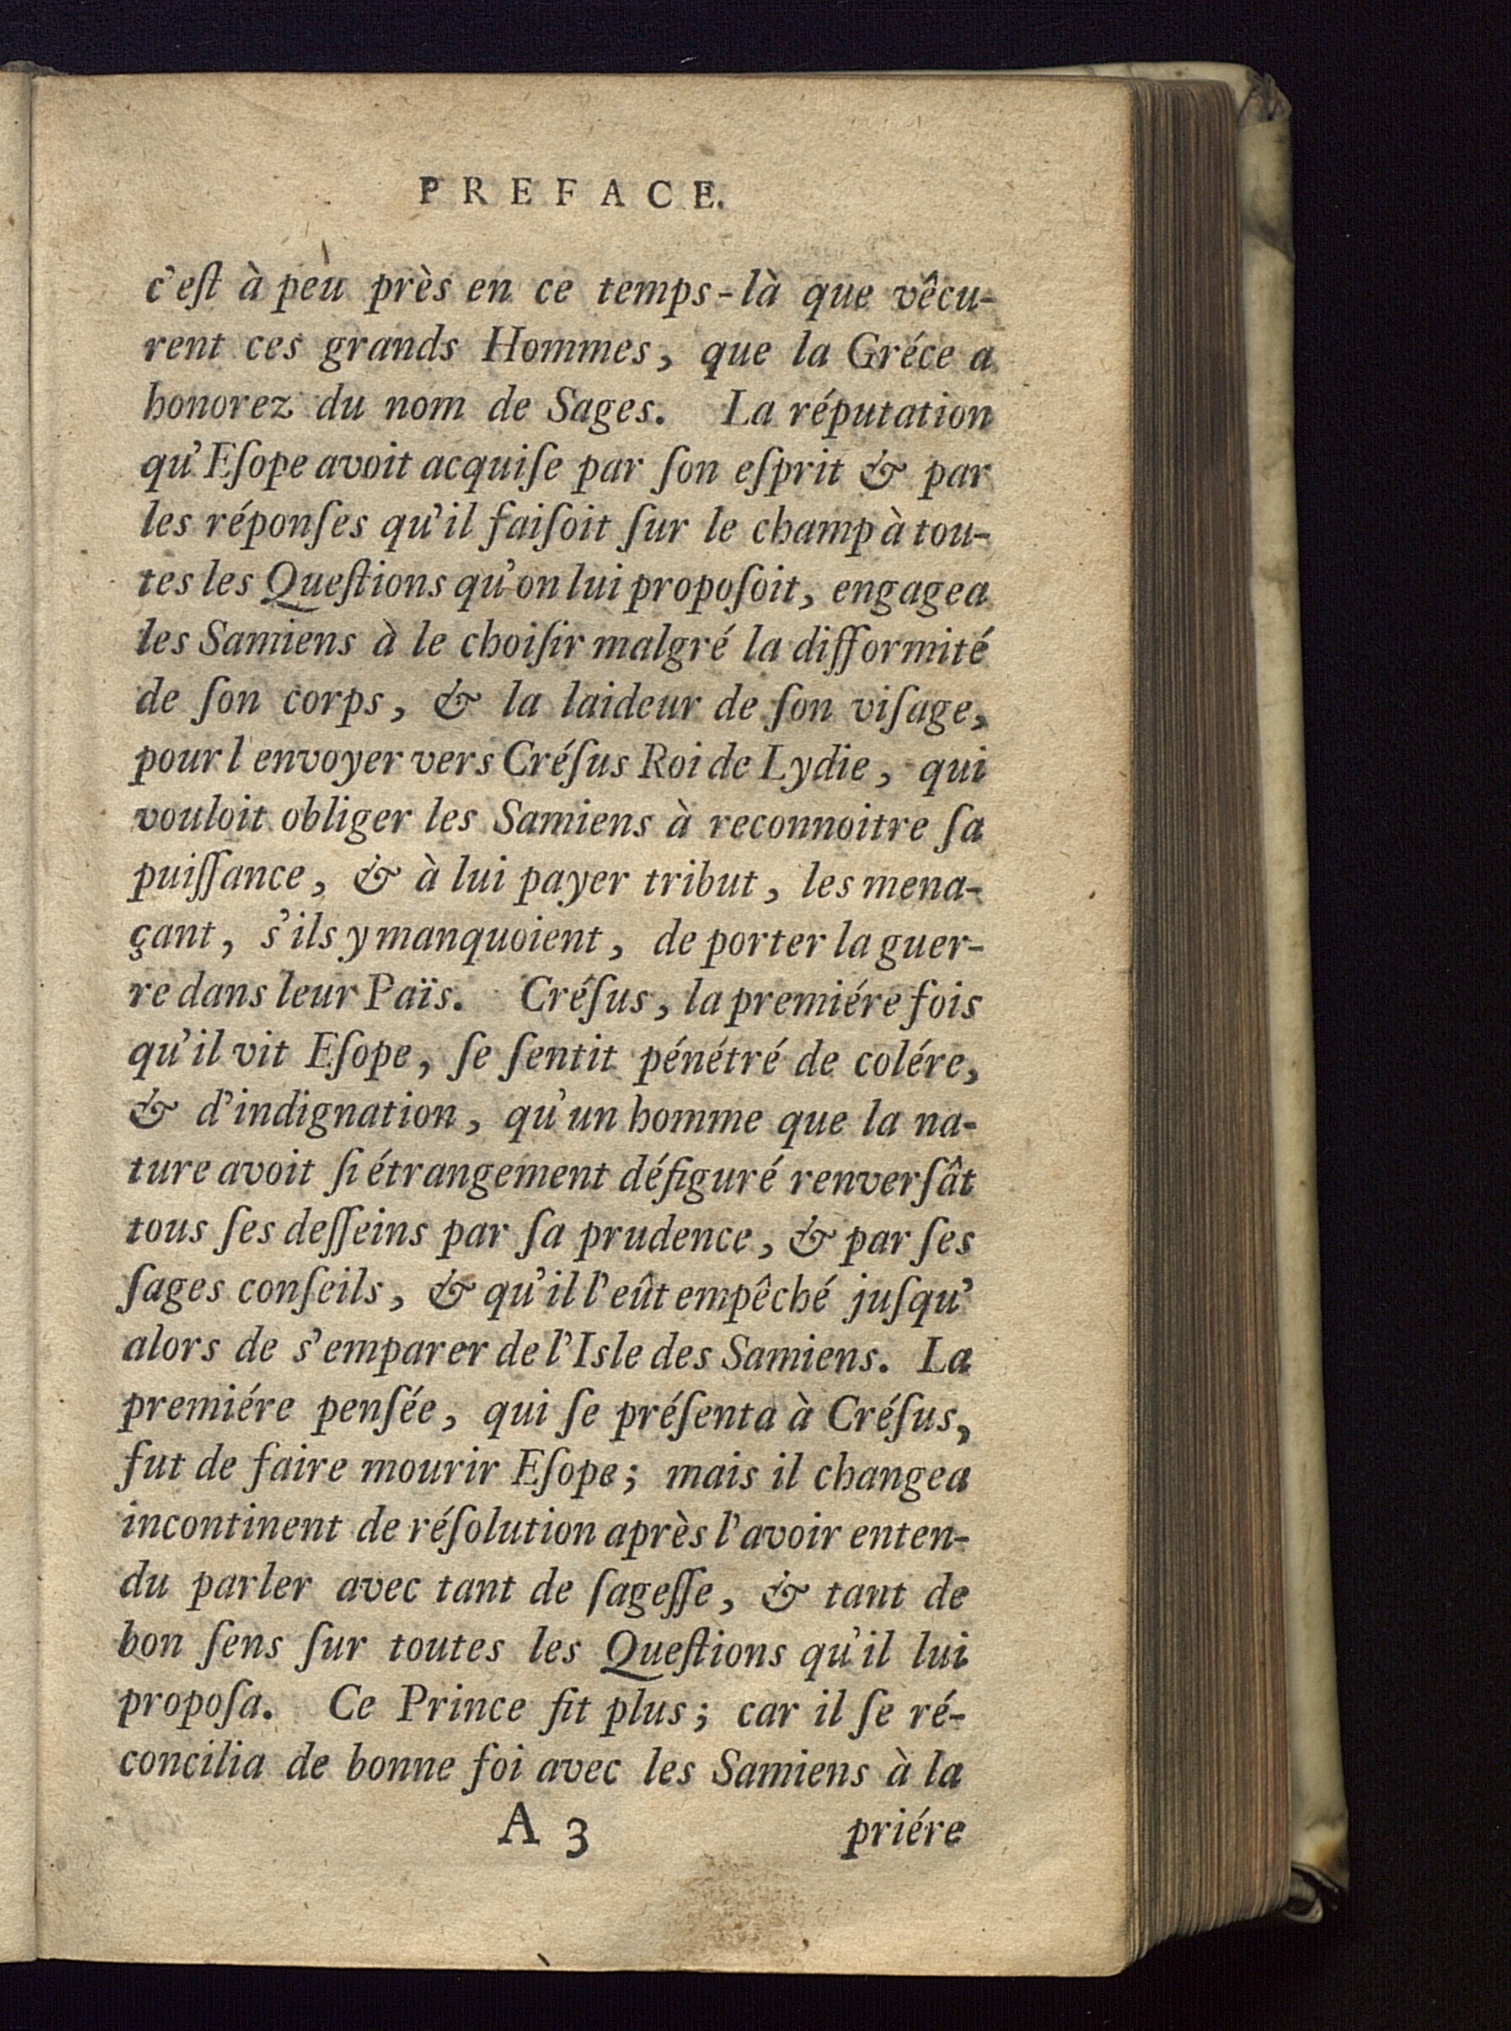 PREFACE.
c'eſt à peu près en ce temps-là que vêcu-
rent ces grands Hommes, que la Gréce a
honorez du nom de Sages. La réputation
qu'Eſope avoit acquiſe par ſon eſprit & par
les réponſes qu'il faiſoit ſur le champ à tou-
tes les Queſtions qu'on lui propoſoit, engagea
les Samiens à le choiſir malgré la difformité
de ſon corps, & la laideur de ſon viſage,
pour l'envoyer vers Créſus Roi de Lydie, qui
vouloit obliger les Samiens à reconnoitre ſa
puiſſance, & à lui payer tribut, les mena-
çant, s'ils y manquoient, de porter la guer-
re dans leur Païs. Créſus, la premiére fois
qu'il vit Eſope, ſe ſentit pénétré de colére,
& d'indignation, qu'un homme que la na-
ture avoit ſi étrangement défiguré renverſât
tous ſes deſſeins par ſa prudence, & par ſes
ſages conſeils, & qu'il l'eût empêché juſqu'
alors de s'emparer de l'Isle des Samiens. La
premiére penſée, qui ſe préſenta à Créſus,
fut de faire mourir Eſope; mais il changea
incontinent de réſolution après l'avoir enten-
du parler avec tant de ſageſſe, & tant de
bon ſens ſur toutes les Queſtions qu'il lui
propoſa. Ce Prince fit plus; car il ſe ré-
concilia de bonne foi avec les Samiens à la
A 3 priére